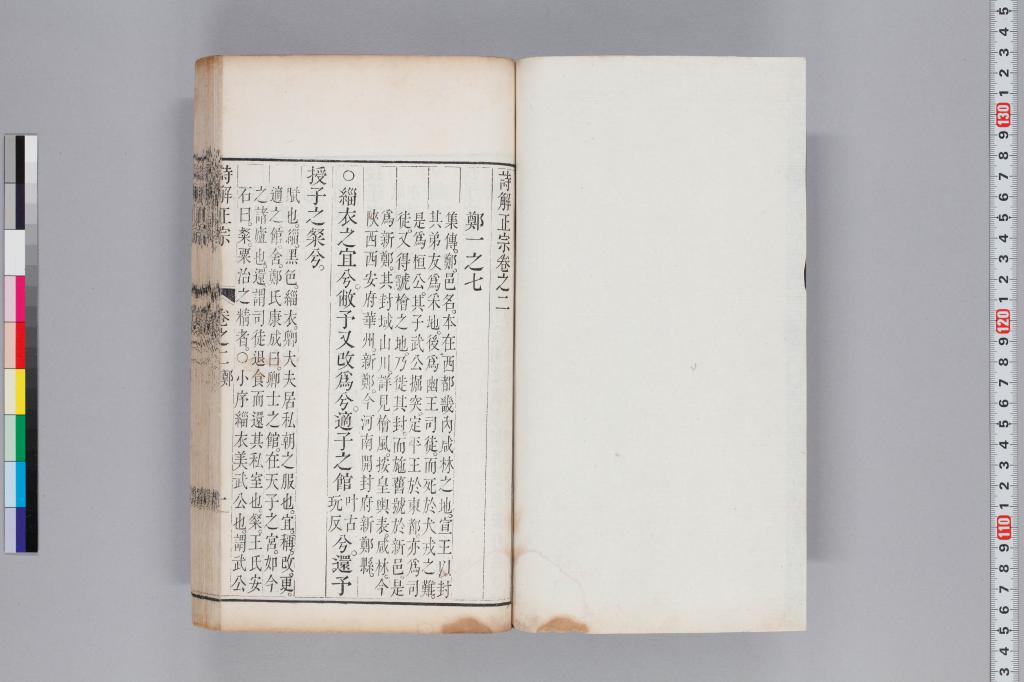 詩解正宗卷之二
鄭一之七
集傳鄭邑名本在西都畿內咸林之地宣王以封
其弟友爲采地後爲幽王司徒而死於犬戎之難
是爲桓公其子武公掘突定平王於東都亦爲司
徒又得虢檜之地乃徙其封而施舊號於新邑是
爲新鄭其封域山川詳見檜風按皇輿表咸林今
陝西西安府華州新鄭今河南開封府新鄭縣
○緇衣之宜兮敝予又改爲兮適子之館叶古玩反兮還予
授子之粲兮
賦也緇黑色緇衣卿大夫居私朝之服也宜稱改更
適之館舍鄭氏康成曰卿士之館在天子之宮如今
之諸廬也還謂司徒退食而還其私室也粲王氏安
石曰粲粟治之精者○小序緇衣美武公也謂武公
詩解正宗
卷之二 鄭
一